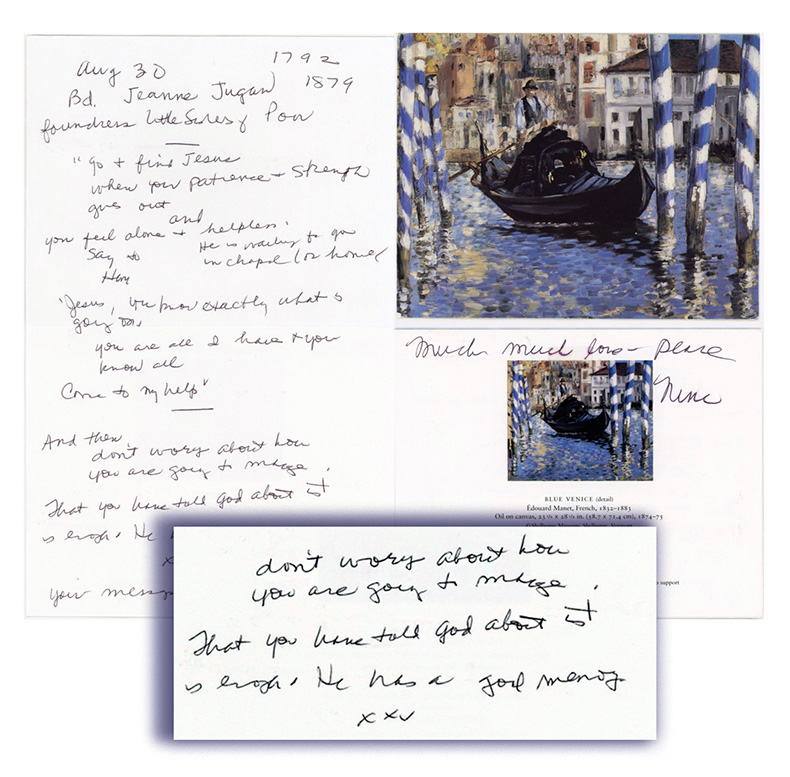 Aug 30 1792
Bd. Jeanne Jugan 1879
foundress Little Sisters of Poor
"Go + find Jesus
when your patience + strength
gives out
and
you feel alone + helpless.
He is waiting for you
Say to
in chapel (or home)
Him
'Jesus, you know exactly what is
going on.
you are all I have + you
know all
Come to my help"
And then
don't worry about how
you are going to manage.
That you have told God about it
is enough. He
your
Much much love - peace
BLUE VENICE (detail)
Édouard Manet, French, 1832–1883
Oil on canvas, 23 1/8 x 28 1/8 in. (58.7 x 71.4 cm), 1874–75
support
don't worry about how
you are going to manage.
That you have told God about it
is enough. He has a good memory